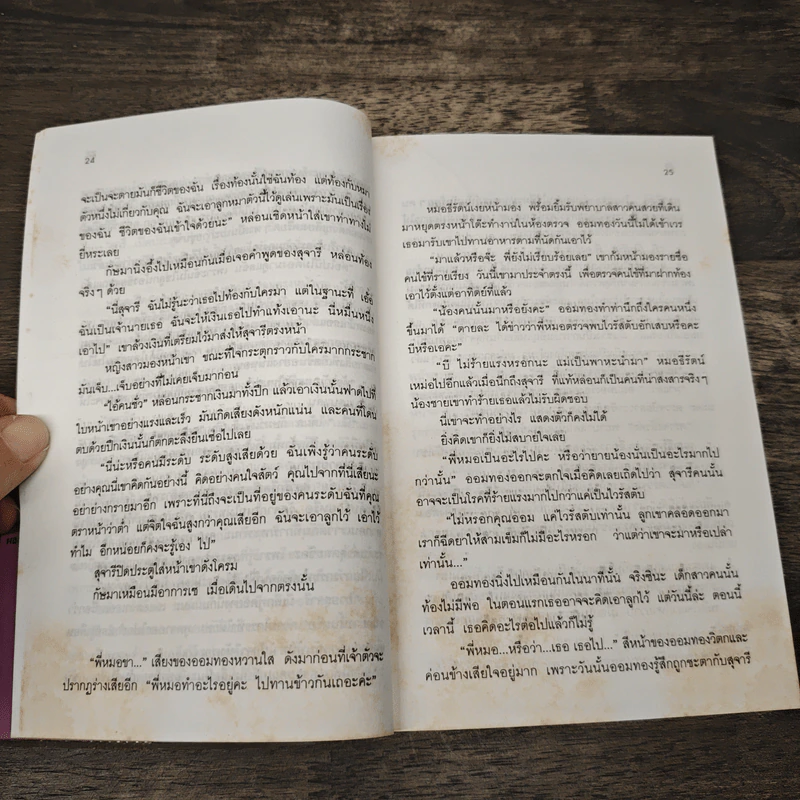 24
จะเป็นจะตายมันก็ชีวิตของฉัน เรื่องท้องนั้นใช่ฉันท้อง แต่ท้องกับหมา
ตัวหนึ่งไม่เกี่ยวกับคุณ ฉันจะเอาลูกหมาตัวนี้ไว้ดูเล่นเพราะมันเป็นเรื่อง
ของฉัน ชีวิตของฉันเข้าใจด้วยนะ" หล่อนเชิดหน้าใส่เขาท่าทางไม่
ยี่หระเลย
กัษมานิ่งอึ้งไปเหมือนกันเมื่อเจอคำพูดของสุจารี หล่อนท้อง
จริงๆ ด้วย
"นี่สุจารี ฉันไม่รู้นะว่าเธอไปท้องกับใครมา แต่ในฐานะที่ เอ้อ
ฉันเป็นเจ้านายเธอ ฉันจะให้เงินเธอไปทำแท้งเอานะ นี่หมื่นหนึ่ง
เอาไป" เขาล้วงเงินที่เตรียมไว้มาส่งให้สุจารีตรงหน้า
หญิงสาวมองหน้าเขา ขณะที่ใจกระตุกราวกับใครมากกระชาก
มันเจ็บ...เจ็บอย่างที่ไม่เคยเจ็บมาก่อน
"ไอ้คนชั่ว" หล่อนกระชากเงินมาทั้งปึก แล้วเอาเงินนั้นฟาดไปที่
ใบหน้าเขาอย่างแรงและเร็ว มันเกิดเสียงดังหนักแน่น และคนที่โดน
ตบด้วยปึกเงินนั้นก็ตกตะลึงยืนเซ่อไปเลย
"นี่น่ะหรือคนมีระดับ ระดับสูงเสียด้วย ฉันเพิ่งรู้ว่าคนระดับ
อย่างคุณนี่เขาคิดกันอย่างนี้ คิดอย่างคนใจสัตว์ คุณไปจากที่นี่เสียนะ
อย่าย่างกรายมาอีก เพราะที่นี่ถึงจะเป็นที่อยู่ของคนระดับฉันที่คุณ
ตราหน้าว่าต่ำ แต่จิตใจฉันสูงกว่าคุณเสียอีก ฉันจะเอาลูกไว้ เอาไว้
ทำไม อีกหน่อยก็คงจะรู้เอง ไป"
สุจารีปิดประตูใส่หน้าเขาดังโครม
กัษมาเหมือนมีอาการเซ เมื่อเดินไปจากตรงนั้น
"พี่หมอขา..." เสียงของออมทองหวานใส ดังมาก่อนที่เจ้าตัวจะ
ปรากฏร่างเสียอีก "พี่หมอทำอะไรอยู่คะ ไปทานข้าวกันเถอะค่ะ"
25
หมอธีรัตน์เงยหน้ามอง พร้อมยิ้มรับพยาบาลสาวคนสวยที่เดิน
มาหยุดตรงหน้าโต๊ะทำงานในห้องตรวจ ออมทองวันนี้ไม่ได้เข้าเวร
เธอมารับเขาไปทานอาหารตามที่นัดกันเอาไว้
"มาแล้วหรือจ๊ะ พี่ยังไม่เรียบร้อยเลย" เขาก้มหน้ามองรายชื่อ
คนไข้ที่รายเรียง วันนี้เขามาประจำตรงนี้ เพื่อตรวจคนไข้ที่มาฝากท้อง
เอาไว้ตั้งแต่อาทิตย์ที่แล้ว
"น้องคนนั้นมาหรือยังคะ" ออมทองทำท่านึกถึงใครคนหนึ่ง
ขึ้นมาได้ "ตายละ ได้ข่าวว่าพี่หมอตรวจพบไวรัสตับอักเสบหรือคะ
บีหรือเอคะ"
"บี ไม่ร้ายแรงหรอกนะ แม่เป็นพาหะนำมา" หมอธีรัตน์
เหม่อไปอีกแล้วเมื่อนึกถึงสุจารี ที่แท้หล่อนก็เป็นคนที่น่าสงสารจริงๆ
น้องชายเขาทำร้ายเธอแล้วไม่รับผิดชอบ
นี่เขาจะทำอย่างไร แสดงตัวก็คงไม่ได้
ยิ่งคิดเขาก็ยิ่งไม่สบายใจเลย
"พี่หมอเป็นอะไรไปคะ หรือว่ายายน้องนั่นเป็นอะไรมากไป
กว่านั้น" ออมทองออกจะตกใจเมื่อคิดเลยเถิดไปว่า สุจารีคนนั้น
อาจจะเป็นโรคที่ร้ายแรงมากไปกว่าแค่เป็นไวรัสตับ
"ไม่หรอกคุณออม แค่ไวรัสตับเท่านั้น ลูกเขาคลอดออกมา
เราก็ฉีดยาให้สามเข็มก็ไม่มีอะไรหรอก ว่าแต่ว่าเขาจะมาหรือเปล่า
เท่านั้น..."
ออมทองนิ่งไปเหมือนกันในนาทีนั้น จริงซินะ เด็กสาวคนนั้น
ท้องไม่มีพ่อ ในตอนแรกเธออาจจะคิดเอาลูกไว้ แต่วันนี้ล่ะ ตอนนี้
เวลานี้ เธอคิดอะไรต่อไปแล้วก็ไม่รู้
"พี่หมอ...หรือว่า...เธอ เธอไป..." สีหน้าของออมทองวิตกและ
ค่อนข้างเสียใจอยู่มาก เพราะวันนั้นออมทองรู้สึกถูกชะตากับสุจารี